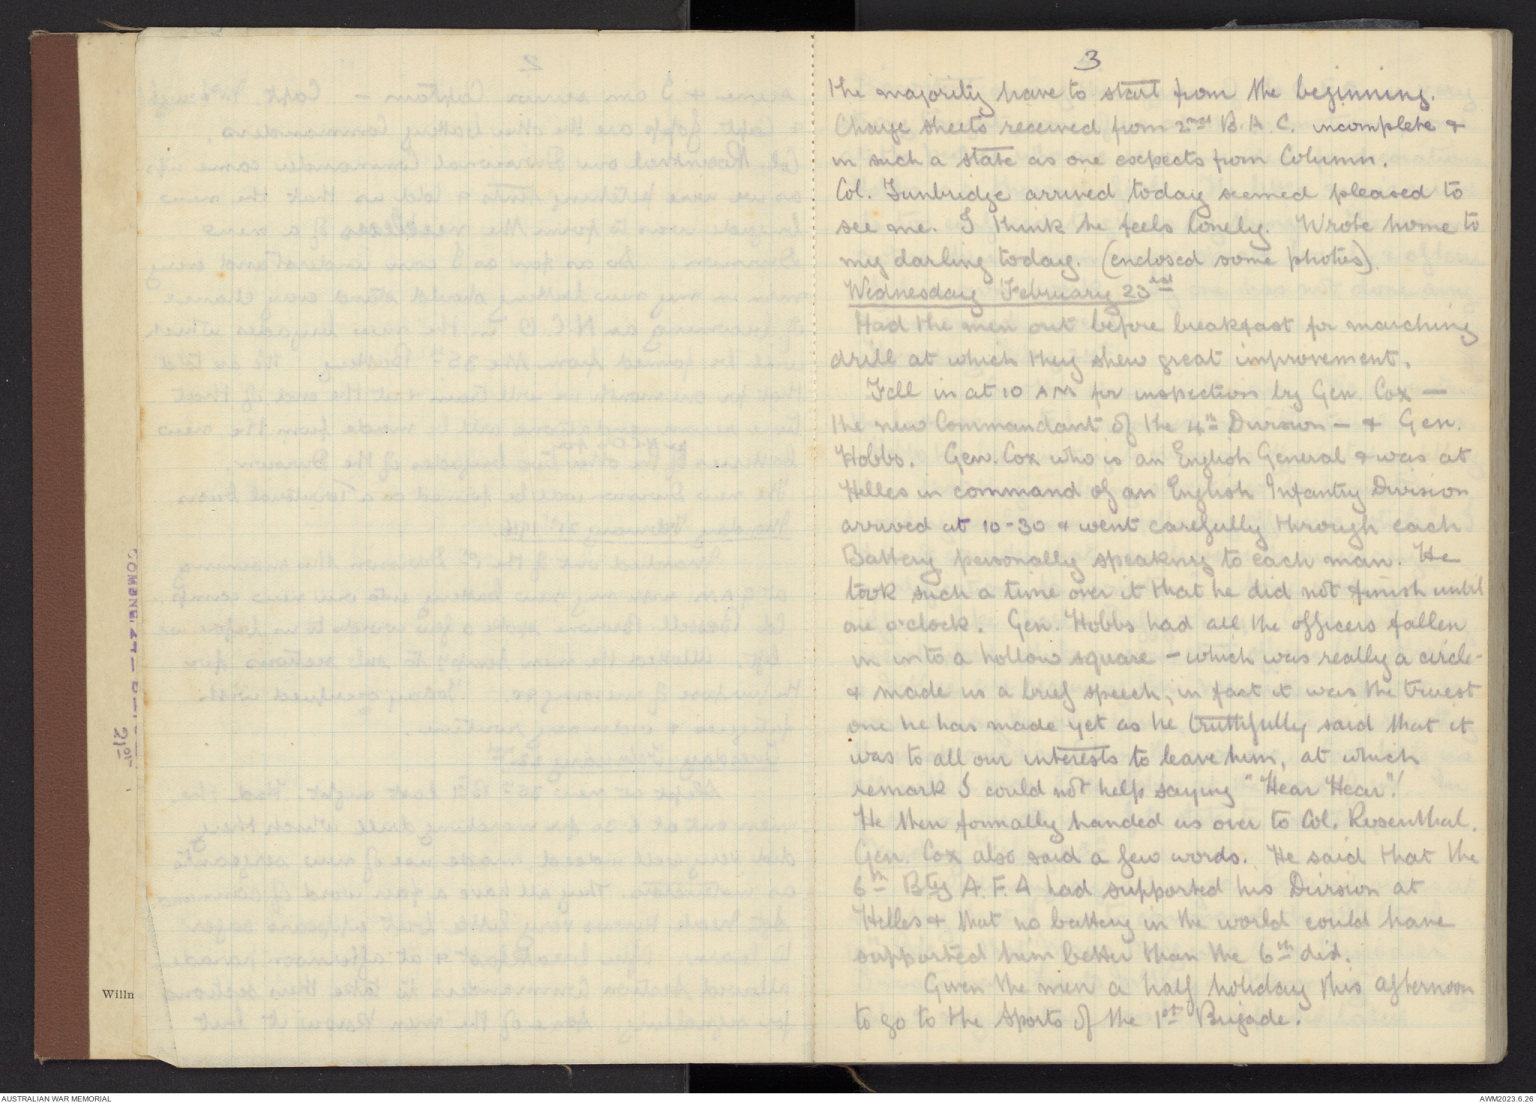 3
the majority have to start from the beginning.
Charge sheets received from 2nd B.A.C. incomplete &
in such a state as one expects from Column.
Col. Tunbridge arrived today seemed pleased to
see me. I think he feels lonely. Wrote home to
my darling today. (enclosed some photos).
Wednesday February 23rd
Had the men out before breakfast for marching
drill at which they shew great improvement.
Fell in at 10 AM for inspection by Gen. Cox —
the new Commandant of the 4th Division — & Gen.
Hobbs. Gen. Cox who is an English General & was at
Helles in command of an English Infantry Division
arrived at 10-30 & went carefully through each
Battery personally speaking to each man. He
took such a time over it that he did not finish until
one o'clock. Gen. Hobbs had all the officers fallen
in into a hollow square - which was really a circle -
& made us a brief speech, in fact it was the truest
one he has made yet as he truthfully said that it
was to all our interests to leave him, at which
remark I could not help saying "Hear Hear"!
He then formally handed us over to Col. Rosenthal.
Gen. Cox also said a few words. He said that the
6th Bty A.F.A had supported his Division at
Helles & that no battery in the world could have
supported him better than the 6th did.
Given the men a half holiday this afternoon
to go to the Sports of the 1st Brigade.
Willm
AUSTRALIAN WAR MEMORIAL
AWM2023.6.26